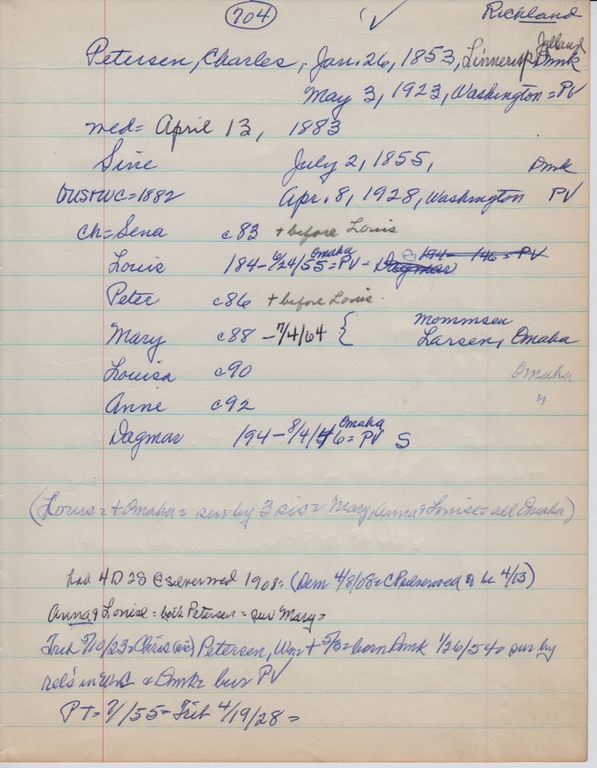 704
Richland
Petersen, Charles, Jan. 26, 1853, Linnerup Jylland Dmk
May 3, 1923, Washington = PV
med = April 13, 1883
Sine July 2, 1855, Dmk
to US+WC=1882 Apr. 8, 1928, Washington PV
Ch = Sena c83 + before Louis
Louis 184–6/24/55 = Omaha PV – Dagmar S 194– 146 = PV
Peter c86 + before Louis.
Mary c88 – 7/4/64 { Mommsen
Larsen, Omaha
Louisa c90 Omaha
Anne c92 "
Dagmar 194–8/4/46 = Omaha PV S
(Louis = + Omaha = sur by 3 sis = Mary, Anna & Louise = all Omaha)
had 4D 2S @ silver wed 1908 = (Dem 4/8/08 = C P silver wed to be 4/13)
Anna & Louise = both Petersen = sur Mary =
Trib 5/10/23 = Chris (sic) Petersen, Wn = + 5/3 = born Dmk 1/26/54 = sur by
rels in WC & Dmk = bur PV
PT = 7/55 = Trib 4/19/28 =